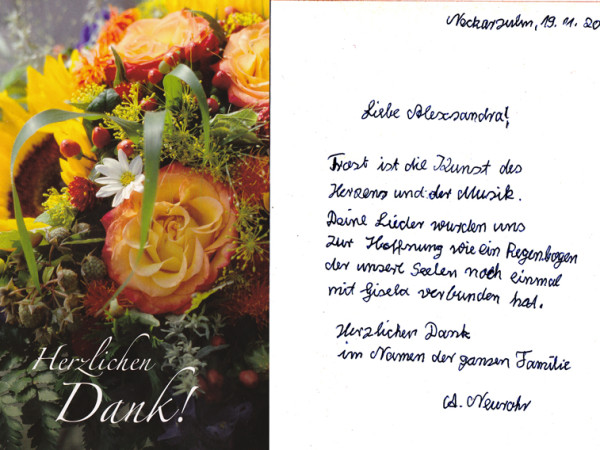 Herzlichen
Dank!
Neckarsulm, 19.11.20
Liebe Alexsandra!
Trost ist die Kunst des
Herzens und der Musik.
Deine Lieder wurden uns
zur Hoffnung wie ein Regenbogen
der unsere Seelen noch einmal
mit Gisela verbunden hat.
Herzlichen Dank
im Namen der ganzen Familie
A. Neurohr